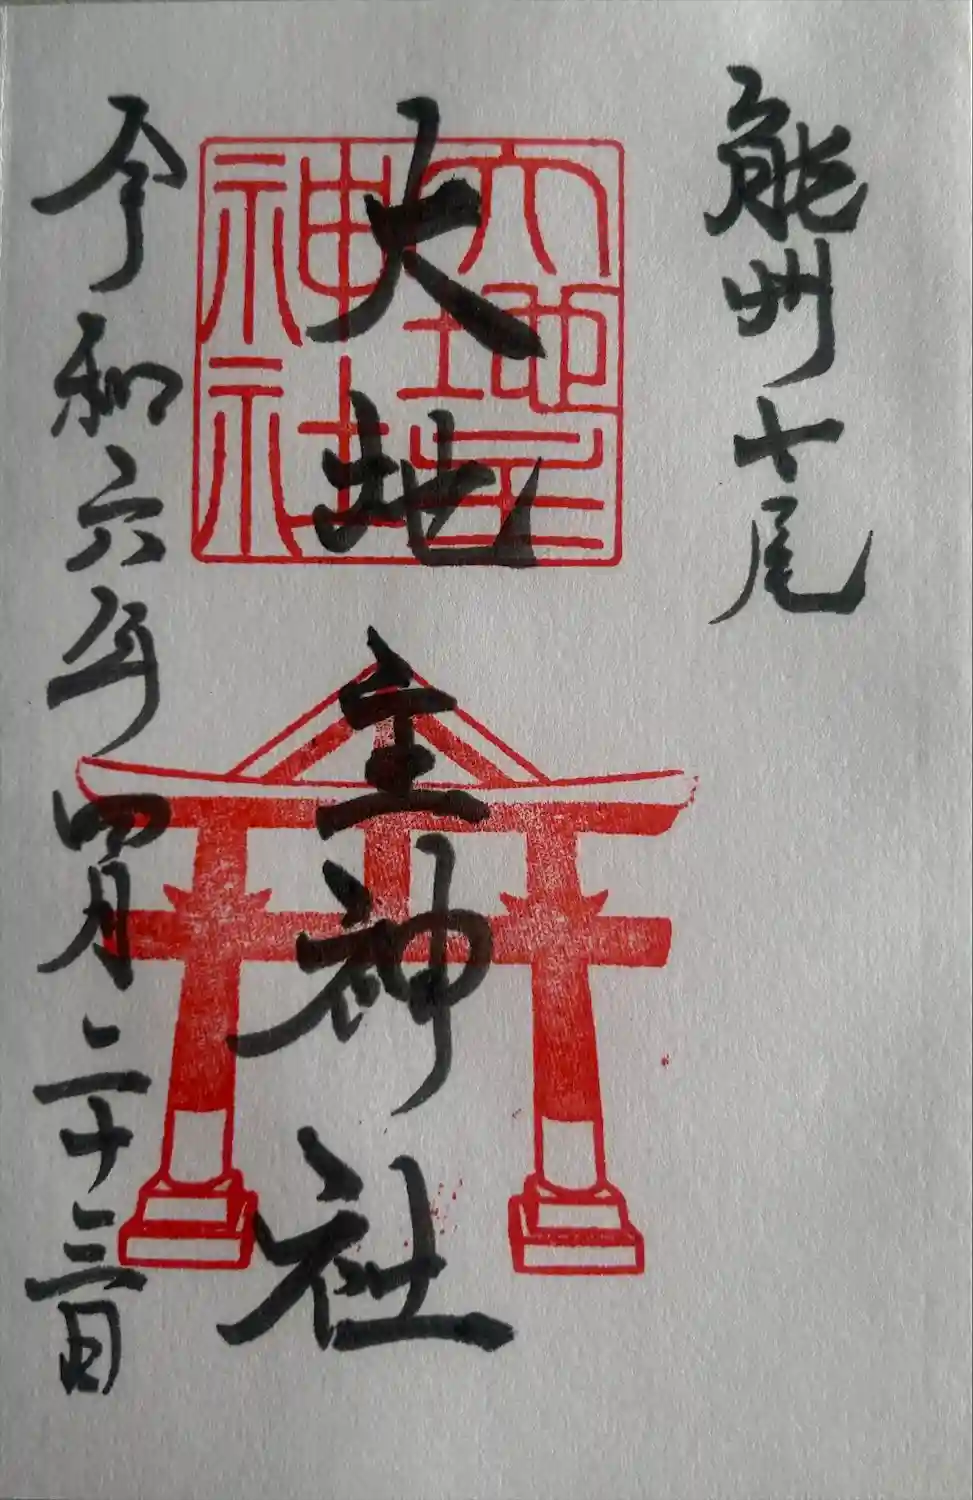 能州七尾
大地主神社
大地主神社
令和六年四月二十三日